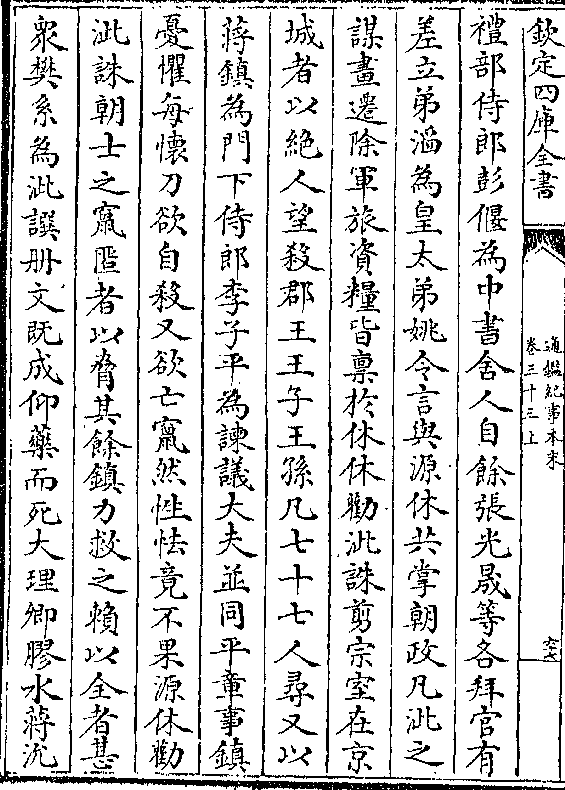 欽定四庫全書
通鑑紀事本末
卷三十三上
禮部侍郎彭偃為中書舍人自餘張光晟等各拜官有
差立弟滔為皇太弟姚令言與源休共掌朝政凡泚之
謀畫遷除軍旅資糧皆稟於休休勸泚誅剪宗室在京
城者以絶人望殺郡王王子王孫凡七十七人尋又以
蔣鎮為門下侍郎李子平為諫議大夫並同平章事鎮
憂懼每懷刀欲自殺又欲亡竄然性怯竟不果源休勸
泚誅朝士之竄匿者以脅其餘鎮力救之賴以全者甚
衆樊系為泚譔册文既成仰藥而死大理卿膠水蔣沇